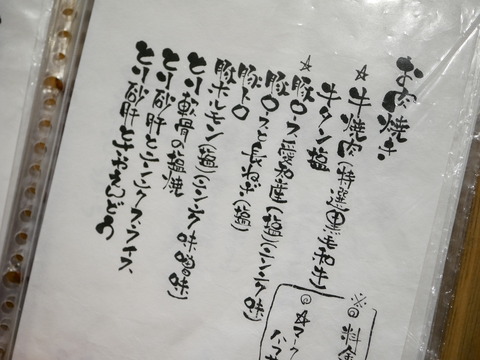 お肉焼き
☆牛焼肉(特選黒毛和牛)
牛タン塩
☆豚ロス愛知産(塩)(ニンニク味)
豚ロスと長ねぎ(塩)
豚トロ
豚ホルモン(塩)(ニンニク味噌味)
とり軟骨の塩焼
とり砂肝とニンニクスライス
とり砂肝と
※◎料金
◎☆マーク